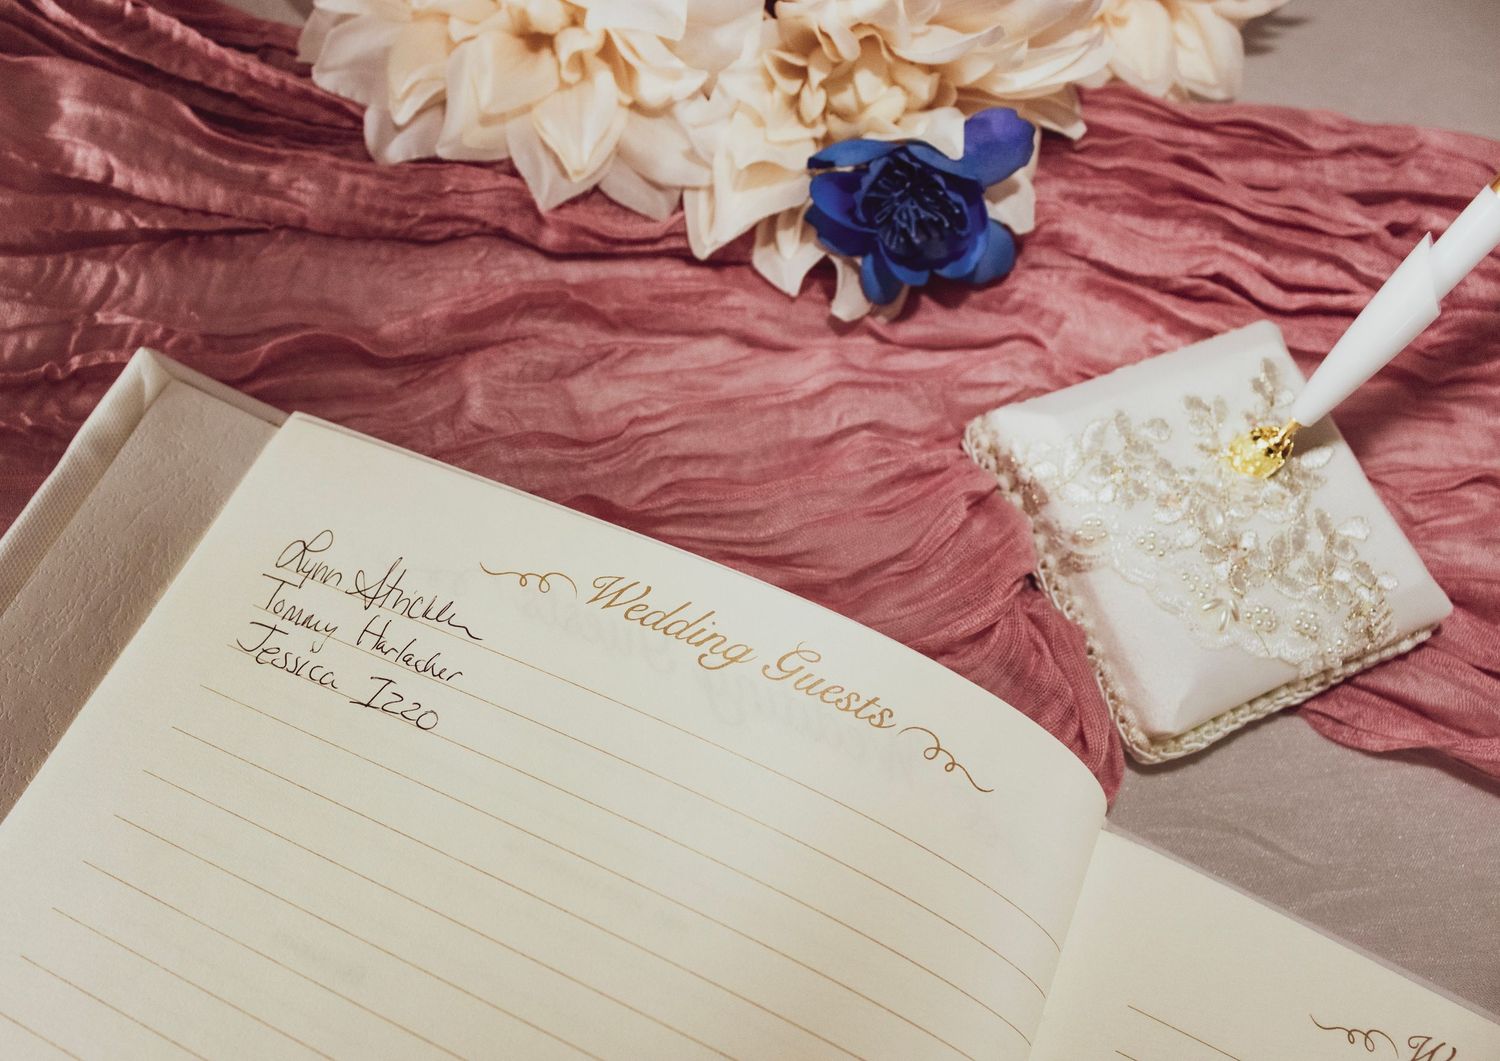 Wedding Guests
Lynn Strickler
Tommy Harlacher
Jessica Izzo